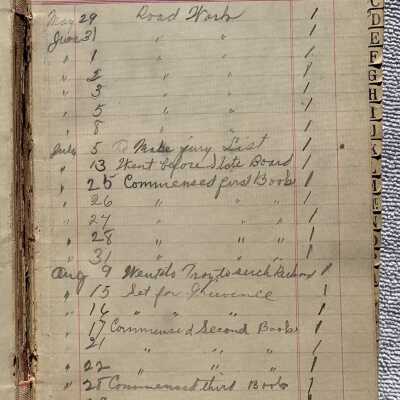 May 29 Road Work 1
June 31 " " 1
" 1 " " 1
" 2 " " 1
" 3 " " 1
" 5 " " 1
" 8 " " 1
July 5 To Make jury List 1
" 13 Went before State Board 1
" 25 Commensed first Book 1
" 26 " " " 1
" 27 " " " 1
" 28 " " " 1
" 31 " " " 1
Aug 9 Went to Troy to serch Records 1
" 15 Set for Grievence 1
" 16 " " " 1
" 17 Commensed Second Book 1
" 21 " " " 1
" 22 " " " 1
" 28 Commensed third Book 1
C
D
E
F
G
H
I
J
K
L
M